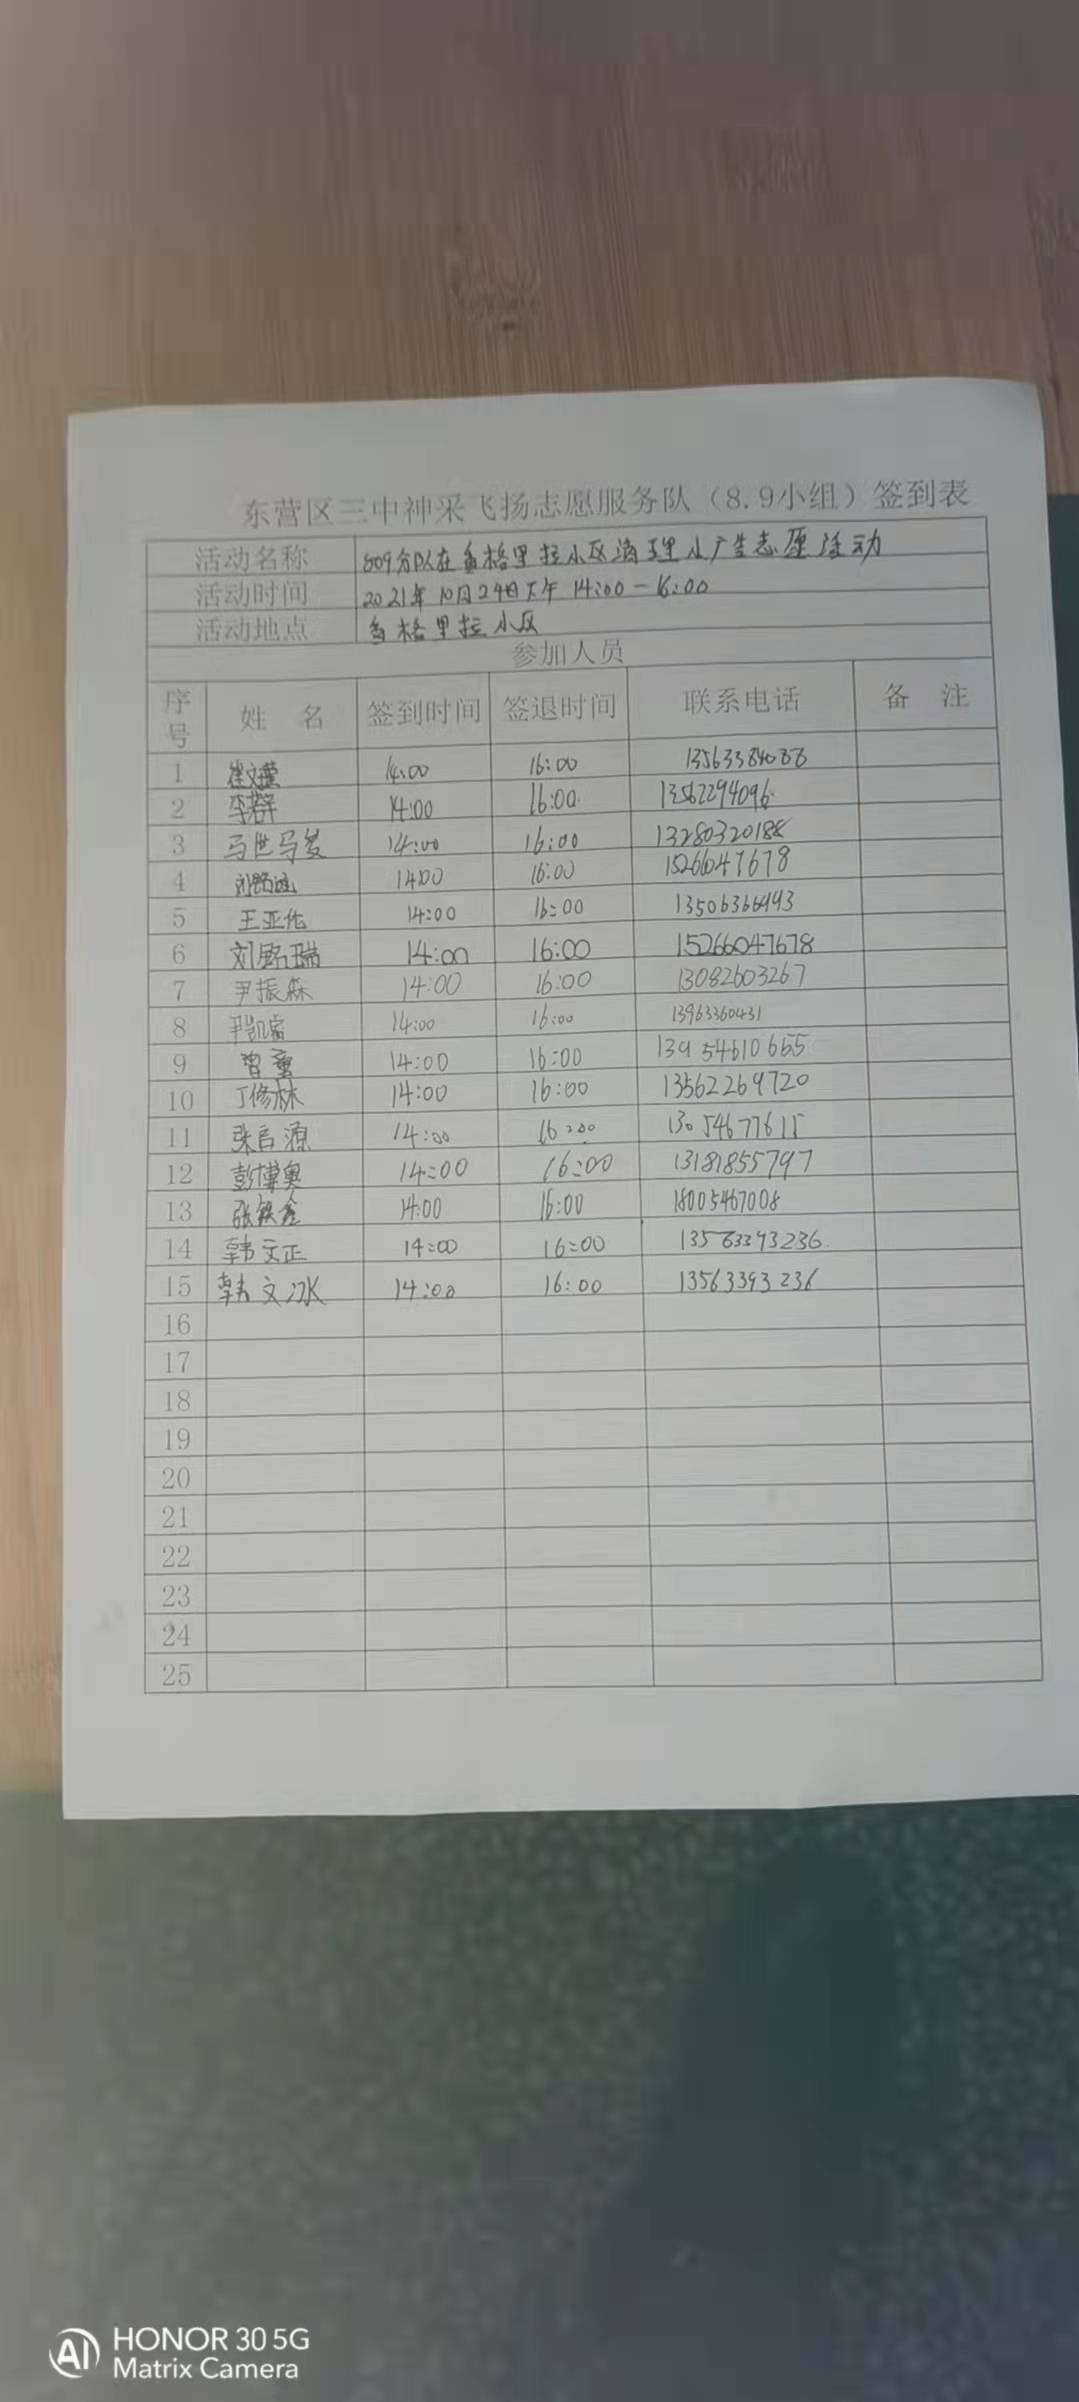 东营区三中神采飞扬志愿服务队（8.9小组）签到表
活动名称 809分队在香格里拉小区清理小广告志愿活动
活动时间 2021年10月24日下午 14:00-16:00
活动地点 香格里拉小区
参加人员
序号 姓 名 签到时间 签退时间 联系电话 备 注
1 崔文莹 14:00 16:00 13563384088
2 14:00 16:00 13562294096
3 14:00 16:00 13280320188
4 14:00 16:00 15266047678
5 王亚伦 14:00 16:00
6 刘铭瑞 14:00 16:00 15266047678
7 尹振森 14:00 16:00 13082603267
8 尹凯富 14:00 16:00 13963360431
9 14:00 16:00 13954610665
10 丁修林 14:00 16:00 13562269720
11 张启源 14:00 16:00 13054677615
12 彭博奥 14:00 16:00 13181855797
13 张铁鑫 14:00 16:00 18005467008
14 韩文正 14:00 16:00 13563393236
15 韩文冰 14:00 16:00 13563393236
16
17
18
19
20
21
22
23
24
25
AI HONOR 30 5G
Matrix Camera